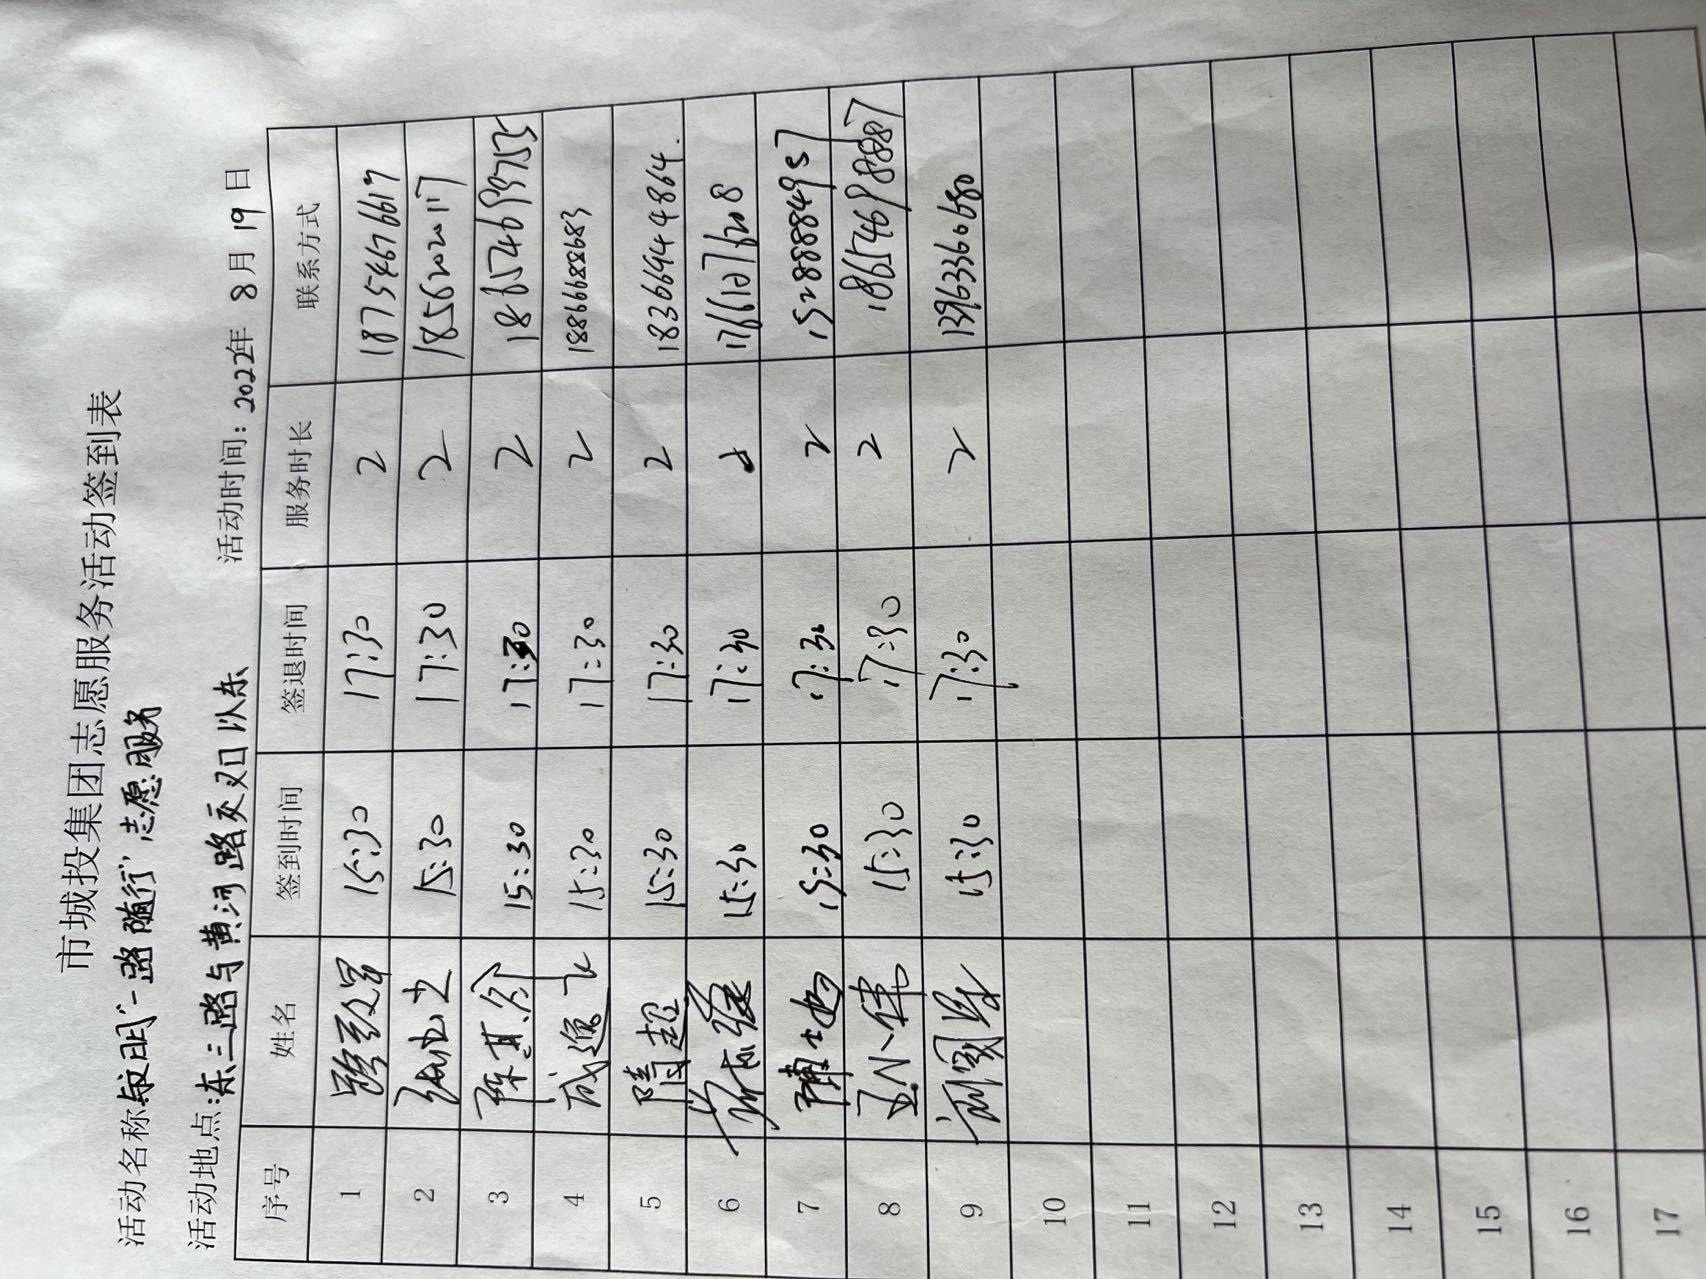 市城投集团志愿服务活动签到表
活动名称：“一路随行”志愿服务
活动地点：东三路与黄河路交叉口以东 活动时间：2022年 8月 19日
序号 姓名 签到时间 签退时间 服务时长 联系方式
1 15:30 17:30 2 18754676617
2 15:30 17:30 2 18562020117
3 15:30 17:30 2
4 15:30 17:30 2 18866688683
5 隋超 15:30 17:30 2 18366944864.
6 15:30 17:30 2 17661071208
7 15:30 17:30 2 15288884957
8 15:30 17:30 2 18654698887
9 15:30 17:30 2 13963360680
10
11
12
13
14
15
16
17